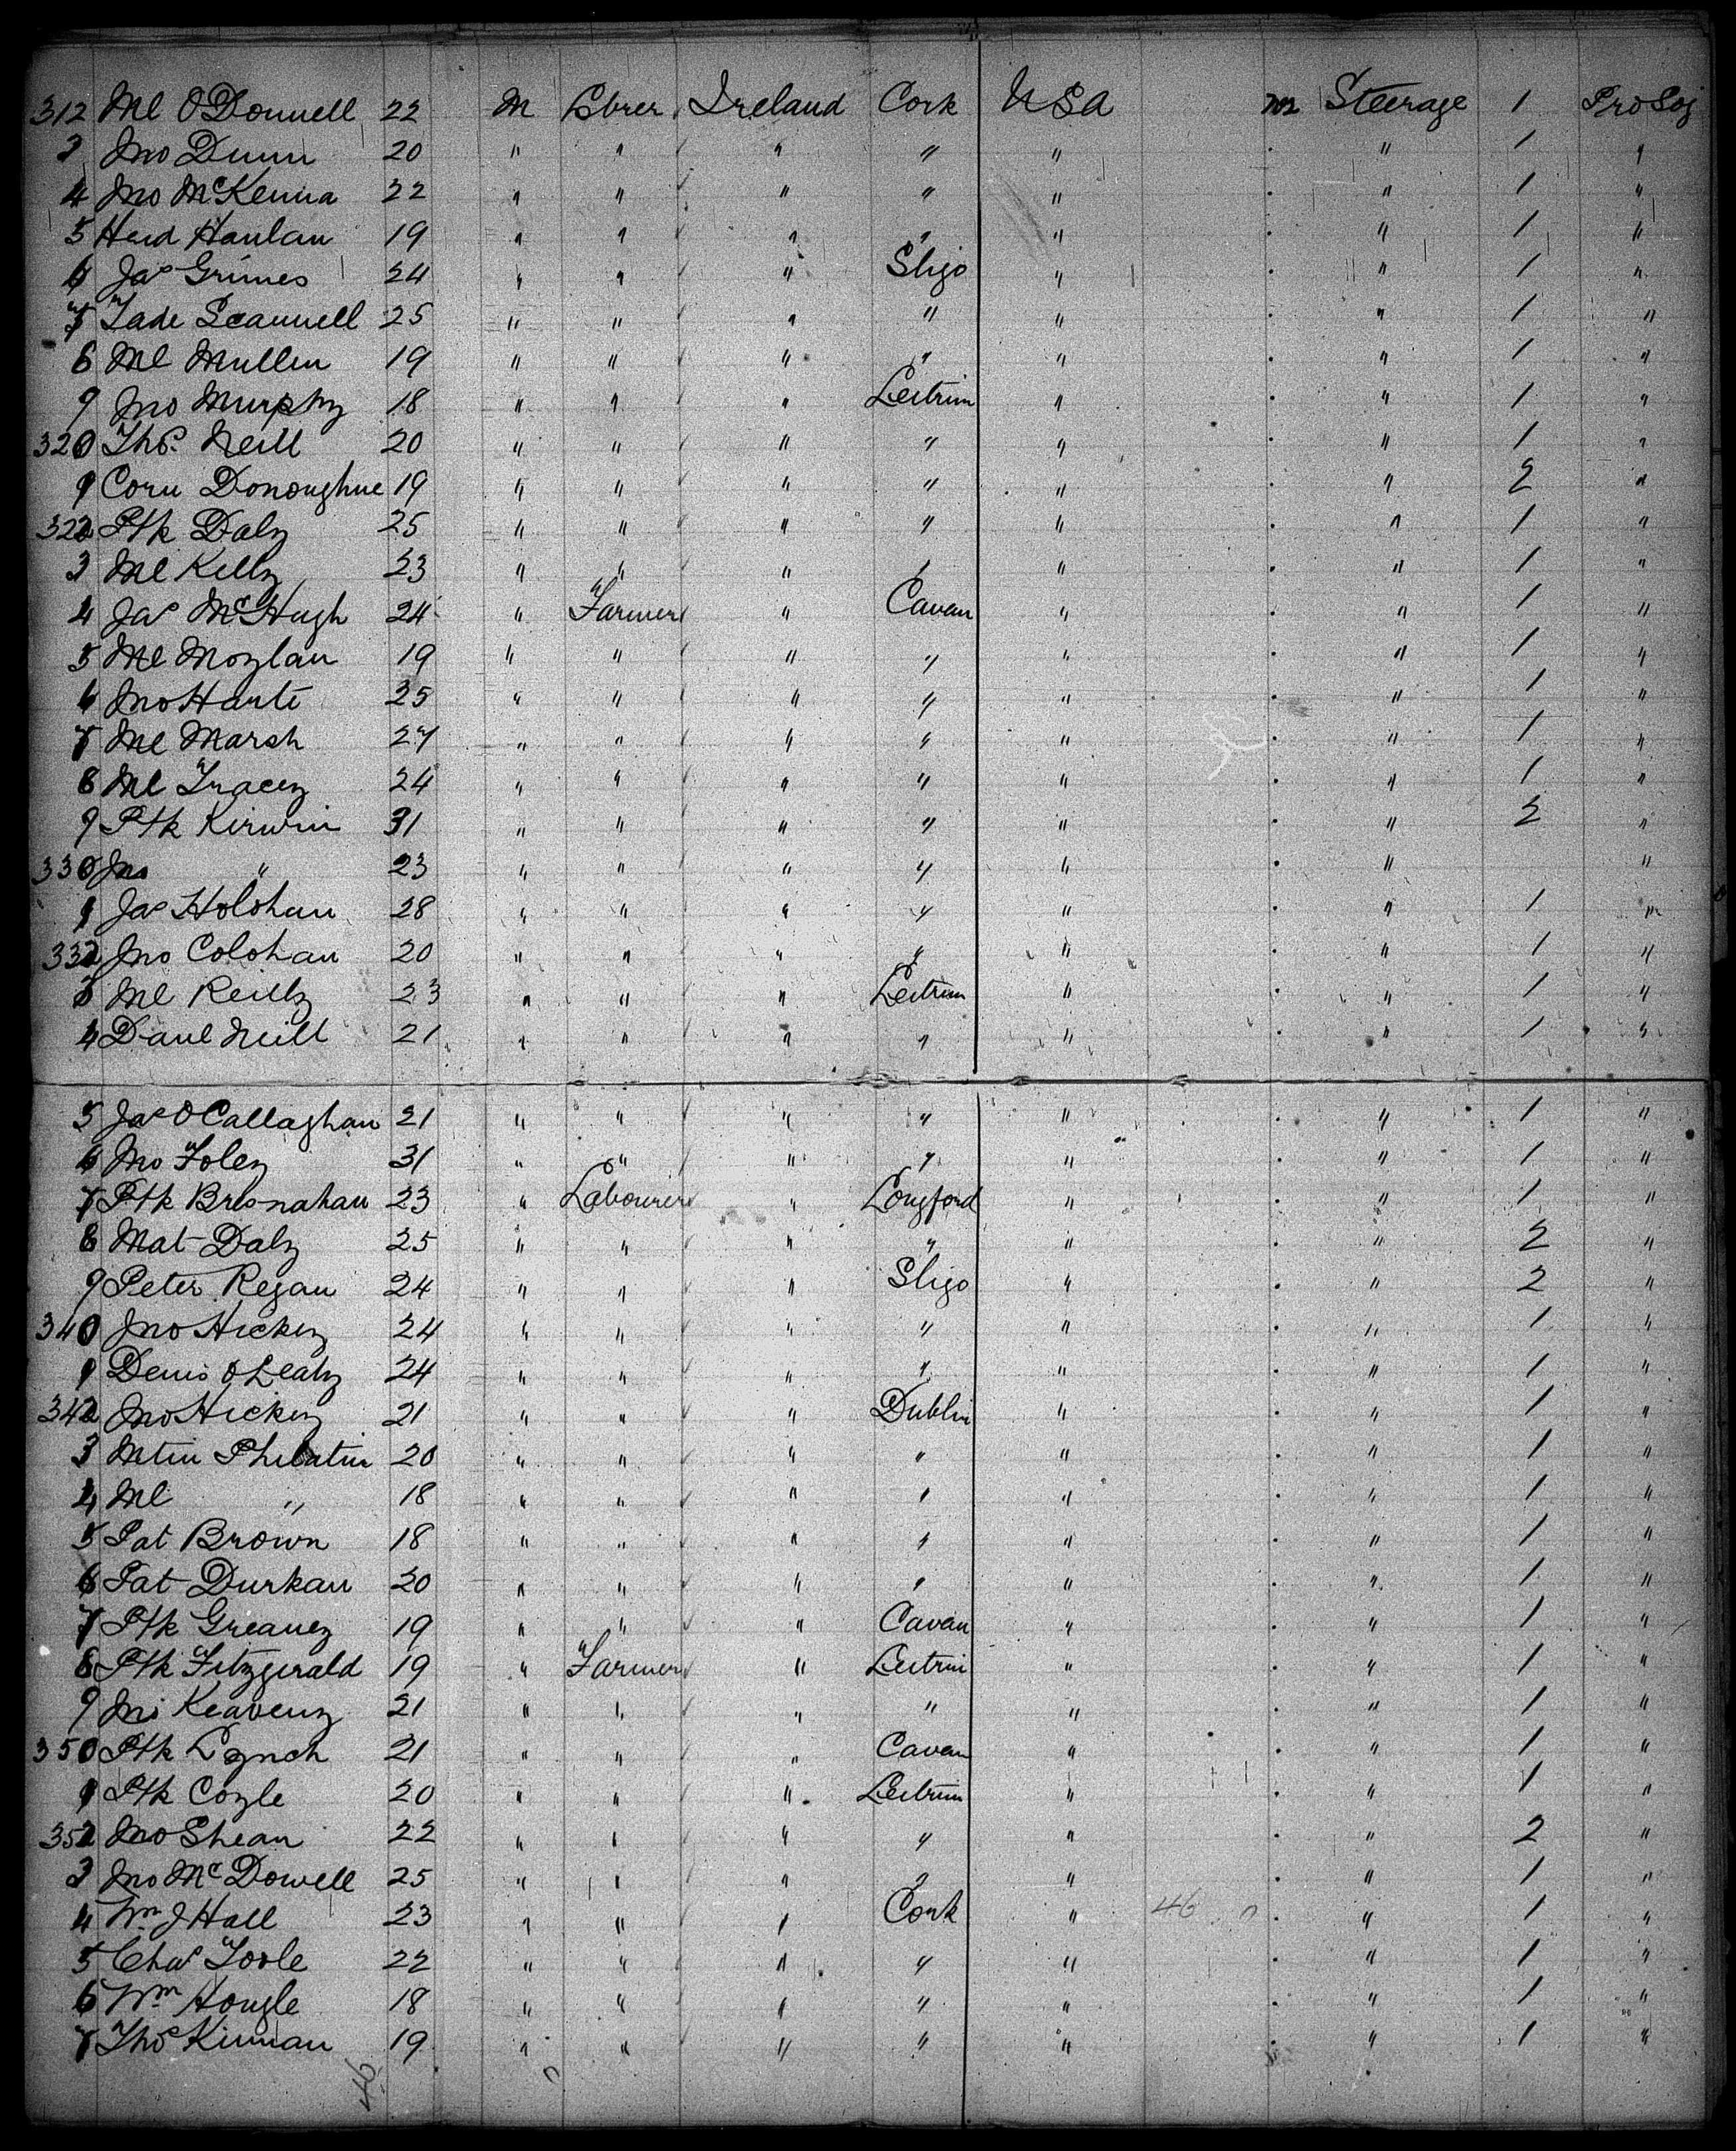 312 Ml O'Donnell 22 M Lbrer Ireland Cork USA no Steerage 1 Pro Soj
3 Jno Dunn 20 " " " " " . " 1 "
4 Jno McKenna 22 " " " " " . " 1 "
5 Hanlan 19 " " " " " . " 1 "
6 Jas Grimes 24 " " " Sligo " . " 1 "
7 Tade Scannell 25 " " " " " . " 1 "
8 Ml Mullen 19 " " " " " . " 1 "
9 Jno Murphy 18 " " " Leitrim " . " 1 "
320 Thos. Neill 20 " " " " " . " 1 "
1 Corn Donoughue 19 " " " " " . " 2 "
322 Ptk Daly 25 " " " " " . " 1 "
3 Ml Kelly 23 " " " " " . " 1 "
4 Jas McHugh 24 " Farmer " Cavan " . " 1 "
5 Ml Moylan 19 " " " " " . " 1 "
6 Jno Harte 25 " " " " " . " 1 "
7 Ml Marsh 27 " " " " " . " 1 "
8 Ml Tracey 24 " " " " " . " 1 "
9 Ptk Kirwin 31 " " " " " . " 2 "
330 Jno " 23 " " " " " . " "
1 Jas Holohan 28 " " " " " . " 1 "
332 Jno Colohan 20 " " " " " . " 1 "
3 Ml Reilly 23 " " " Leitrim " . " 1 "
4 Danl Neill 21 " " " " " . " 1 "
5 Jas O'Callaghan 21 " " " " " . " 1 "
6 Jno Foley 31 " " " " " . " 1 "
7 Ptk Bresnahan 23 " Labourer " Longford " . " 1 "
8 Mat Daly 25 " " " " " . " 2 "
9 Peter Regan 24 " " " Sligo " . " 2 "
340 Jno Hickey 24 " " " " " . " 1 "
1 Denis O'Leahy 24 " " " " " . " 1 "
342 Jno Hickey 21 " " " Dublin " . " 1 "
3 Mtin 20 " " " " " . " 1 "
4 Ml " 18 " " " " " . " 1 "
5 Pat Brown 18 " " " " " . " 1 "
6 Pat Durkan 20 " " " " " . " 1 "
7 Ptk Greaney 19 " " " Cavan " . " 1 "
8 Ptk Fitzgerald 19 " Farmer " Leitrim " . " 1 "
9 Jno Keaveny 21 " " " " " . " 1 "
350 Ptk Lynch 21 " " " Cavan " . " 1 "
1 Ptk Coyle 20 " " " Leitrim " . " 1 "
352 Jno Shean 22 " " " " " . " 2 "
3 Jno McDowell 25 " " " " " . " 1 "
4 Wm J Hall 23 " " " Cork " 46 . " 1 "
5 Chas Toole 22 " " " " " . " 1 "
6 Wm Hongle 18 " " " " " . " 1 "
7 Thos Kinnan 19 " " " " " " 1 "
46